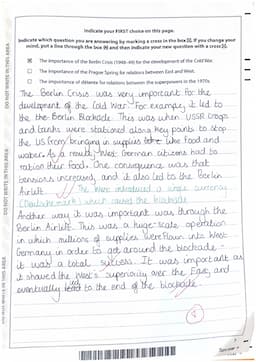 Indicate your FIRST choice on this page.
Indicate which question you are answering by marking a cross in the box ☒. If you change your
mind, put a line through the box and then indicate your new question with a cross ☒.
☒ The importance of the Berlin Crisis (1948–49) for the development of the Cold War.
☐ The importance of the Prague Spring for relations between East and West.
☐ The importance of détente for relations between the superpowers in the 1970s.
The Berlin Crisis was very important for the
development of the Cold War. For example, it led to
the the Berlin Blockade. This was when USSR troops
and tanks were stationed along key points to stop
the US from bringing in supplies like food and
water. As a result, West German citizens had to
ration their food. One consequence was that
tensions increased, and it also led to the Berlin
Airlift. The West introduced a single currency
(Deutschemark) which caused the blockade
Another way it was important was through the
Berlin Airlift. This was a huge-scale operation
in which millions of supplies were flown into West
Germany in order to get around the blockade -
it was a total success. It was important as
it showed the West's superiority over the East, and
eventually lead to the end of the blockade.
DO NOT WRITE IN THIS AREA
DO NOT WRITE IN THIS AREA